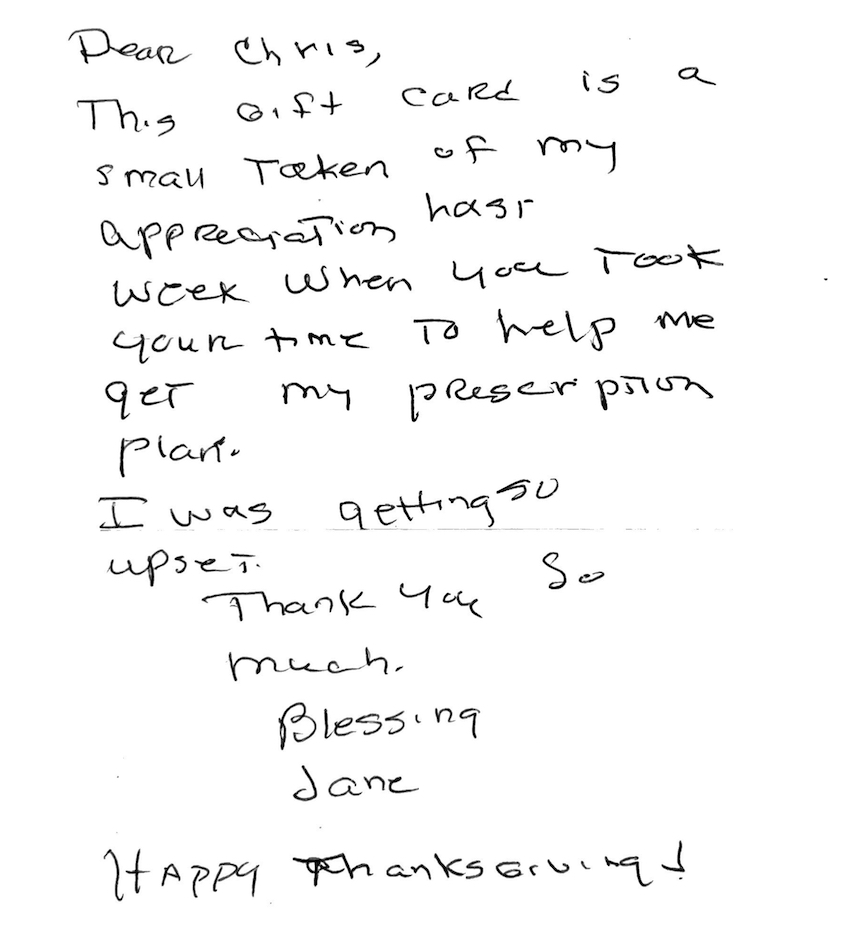 Dear Chris,
This Gift card is a
small Token of my
appreciation last
week when you Took
your time To help me
get my prescription
plan.
I was getting so
upset.
Thank you So
much.
Blessing
Jane
HAPPY Thanksgiving!